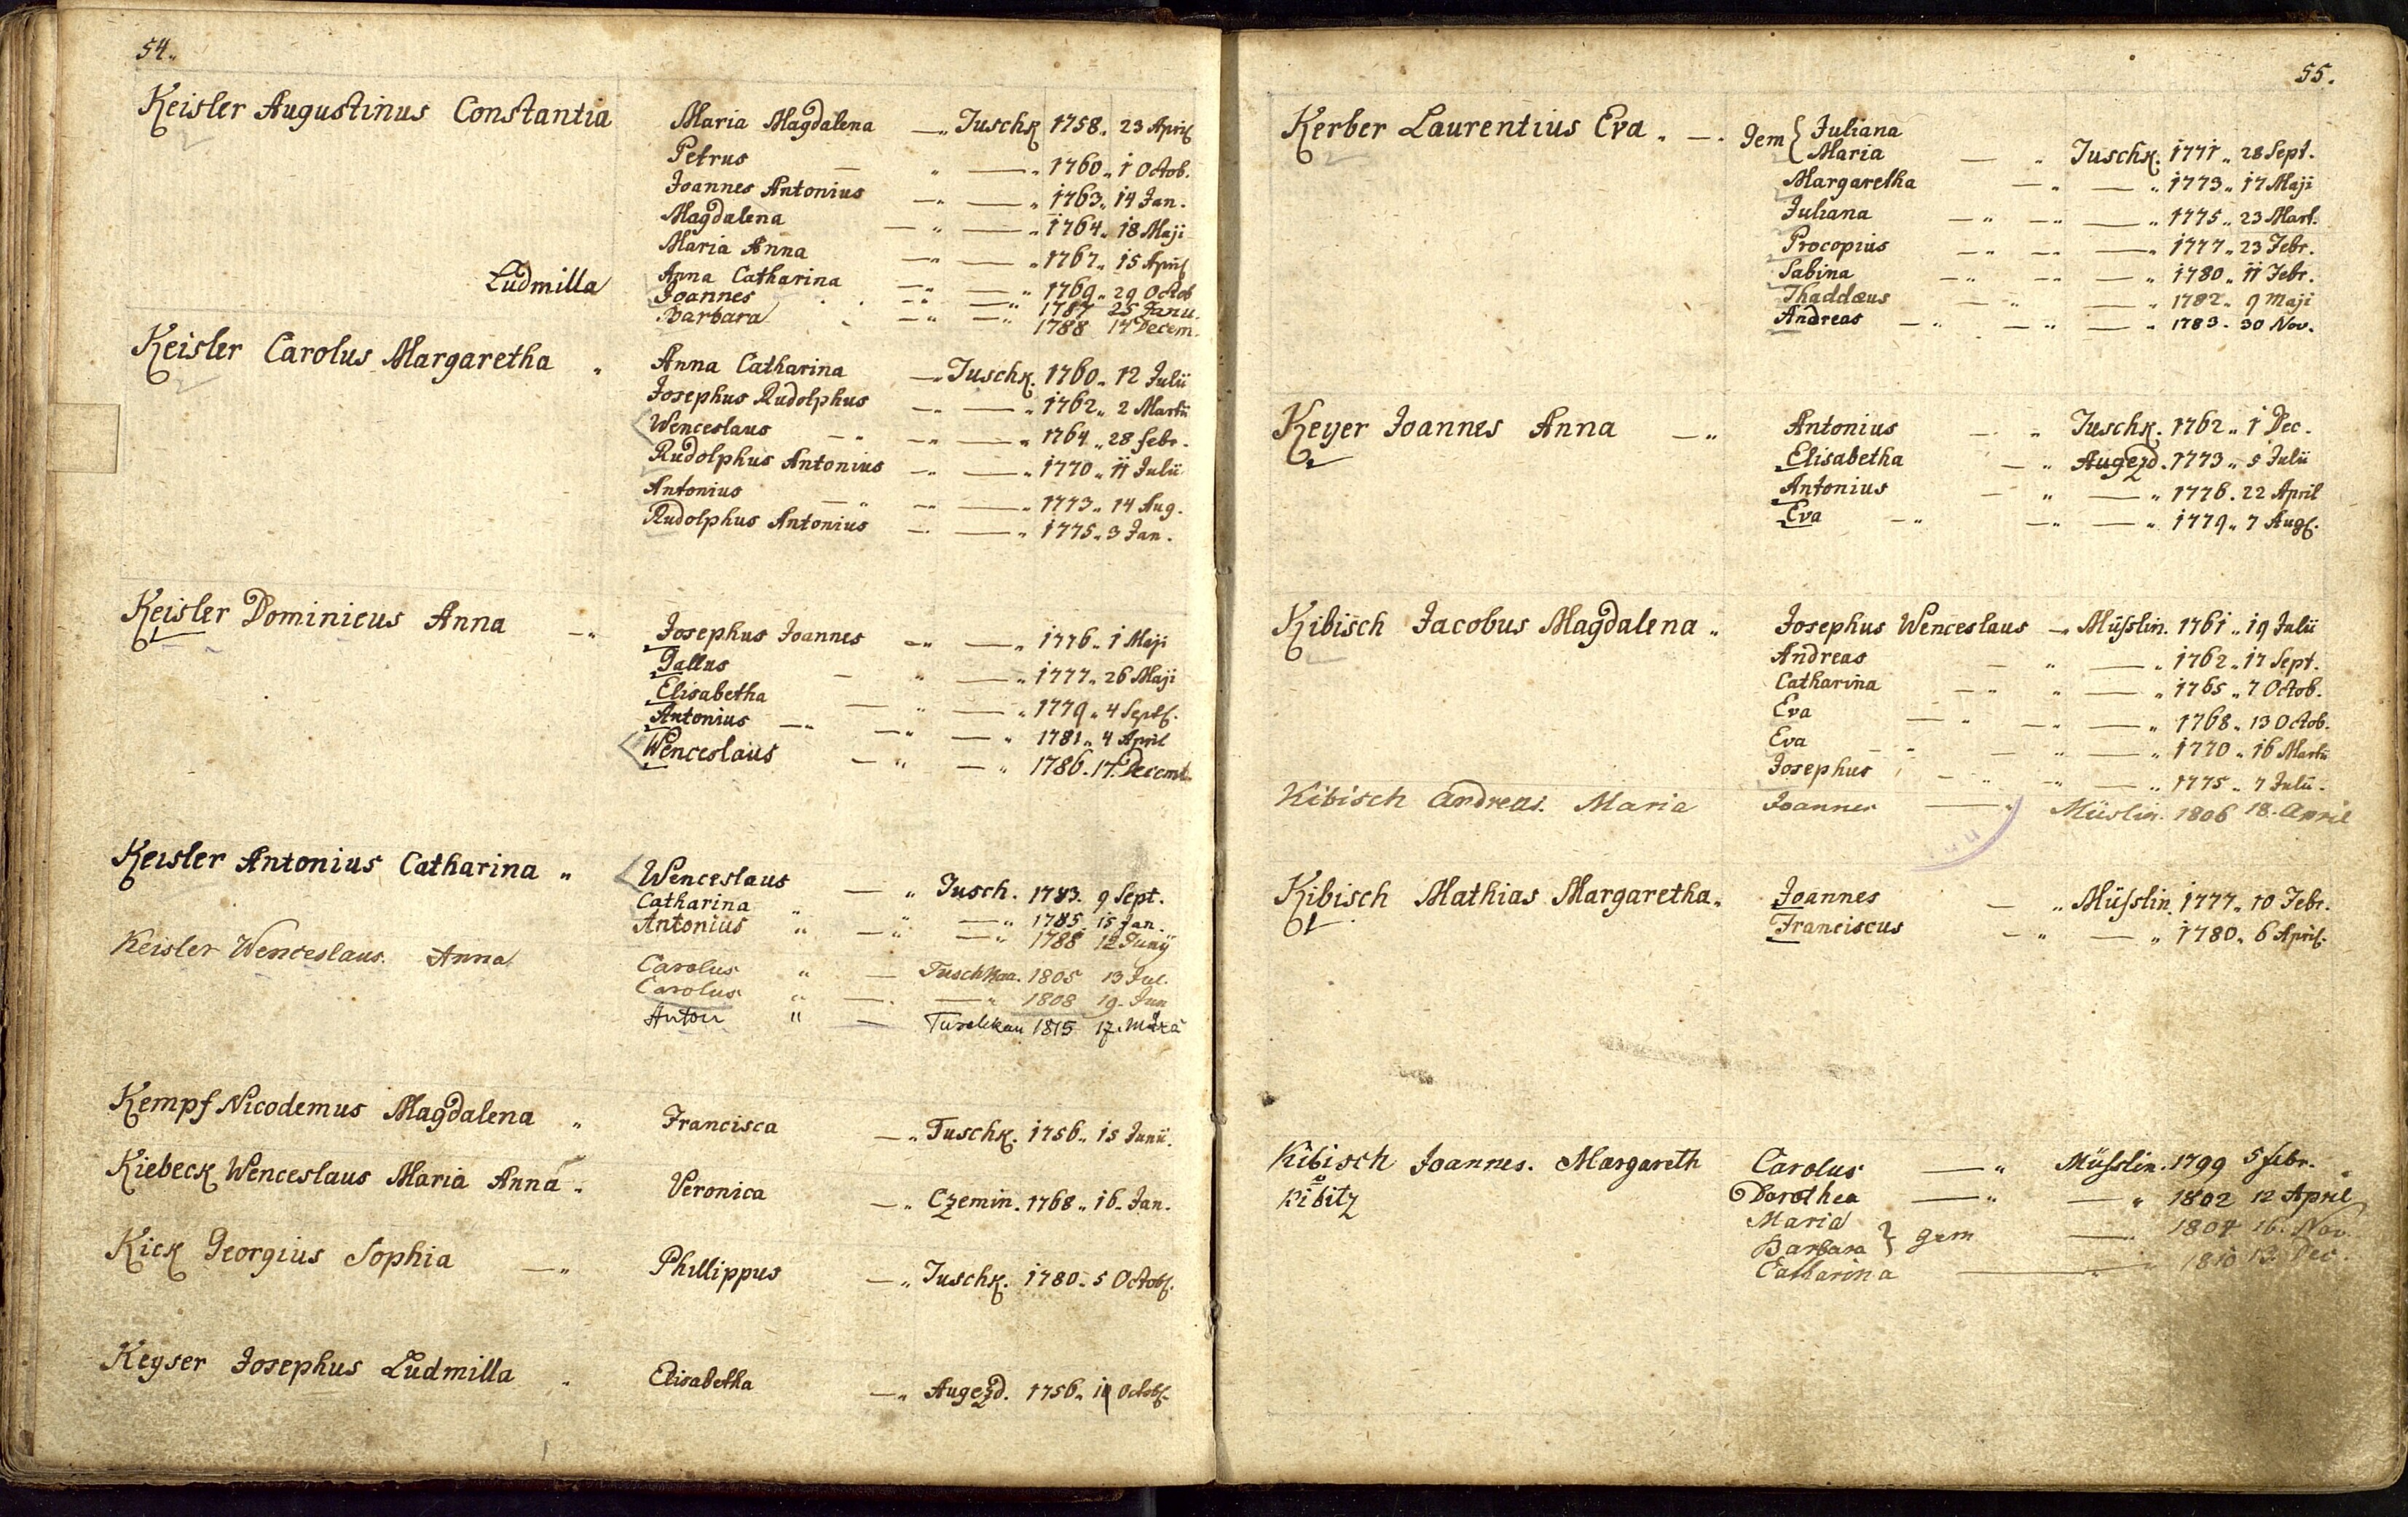 54.
Keisler Augustinus Constantia Maria Magdalena —„ Tuschk 1758. 23 April
Petrus — „ — „ 1760„ 1 Octob.
Joannes Antonius —„ — „ 1763„ 14 Jan.
Magdalena — „ — „ 1764„ 18 Maji
Maria Anna —„ — „ 1767„ 15 April
Ludmilla Anna Catharina —„ — „ 1769„ 29 Octob
Joannes . . —„ —„ 1787 25 Janu.
Barbara —„ —„ 1788 14 Decem.
Keisler Carolus Margaretha „ Anna Catharina —„ Tuschk. 1760„ 12 Julii
Josephus Rudolphus —„ — „ 1762„ 2 Martii
Wenceslaus —„ —„ — „ 1764„ 28 febr.
Rudolphus Antonius —„ — „ 1770„ 11 Julii
Antonius —„ —„ — „ 1773„ 14 Aug.
Rudolphus Antonius — — „ 1775„ 3 Jan.
Keisler Dominicus Anna —„ Josephus Joannes —„ — „ 1776„ 1 Maji
Gallus — „ — „ 1777„ 26 Maji
Elisabetha — „ — „ 1779„ 4 Sept.
Antonius —„ —„ — „ 1781„ 4 April
Wenceslaus — „ — „ 1786. 17. Decemb.
Keisler Antonius Catharina „ Wenceslaus — „ Tusch. 1783. 9 Sept.
Catharina „ „ —„ 1785. 15 Jan.
Antonius „ —„ —„ 1788 12 Junij
Keisler Wenceslaus. Anna Carolus „ — Tuschkaa. 1805 13 Jul.
Carolus „ —. —„ 1808 19. Jun
Anton „ — Tuschkau 1815 17. März
Kempf Nicodemus Magdalena „ Francisca —„ Tuschk. 1756„ 15 Junii.
Kiebeck Wenceslaus Maria Anna „ Veronica —„ Czemin. 1768„ 16 Jan.
Kick Georgius Sophia —„ Phillippus —„ Tuschk. 1780„ 5 Octob.
Keyser Josephus Ludmilla „ Elisabetha —„ Augezd. 1756„ Octob.
55.
Kerber Laurentius Eva „ —. Gem { Juliana
Maria — „ Tuschk. 1771„ 28 Sept.
Margaretha —„ — „ 1773„ 17 Maji
Juliana —„ —„ — „ 1775„ 23 Mart.
Procopius —„ —„ — „ 1777„ 23 Febr.
Sabina —„ —„ — „ 1780„ 11 Febr.
Thaddæus — „ — „ 1782„ 9 Maji
Andreas —„ —„ — „ 1783. 30 Nov.
Keyer Joannes Anna —„ Antonius —. „ Tuschk. 1762„ 1 Dec.
Elisabetha — „ Augezd. 1773„ 5 Julii
Antonius — „ — „ 1776. 22 April
Eva —„ —„ — „ 1779„ 7 Aug.
Kibisch Jacobus Magdalena „ Josephus Wenceslaus —„ Müsslin. 1761„ 19 Julii
Andreas — „ — „ 1762„ 17 Sept.
Catharina —„ „ — „ 1765„ 7 Octob.
Eva —„ —„ — „ 1768„ 13 Octob.
Eva —„ — „ — „ 1770„ 16 Martii
Josephus —„ —„ — „ 1775„ 7 Julii.
Kibisch Andreas. Maria Joannes —„ Müslin. 1806 18. April
Kibisch Mathias Margaretha„ Joannes — „ Müsslin. 1777„ 10 Febr.
Franciscus —„ — „ 1780„ 6 April.
Kibisch Joannes. Margareth Carolus —„ Müsslin. 1799 5 febr.
Kibitz Dorothea —„ —„ 1802 12 April
Maria
Barbara } gem — 1804 16. Nov.
Catharina — „ — 1810 Dec.